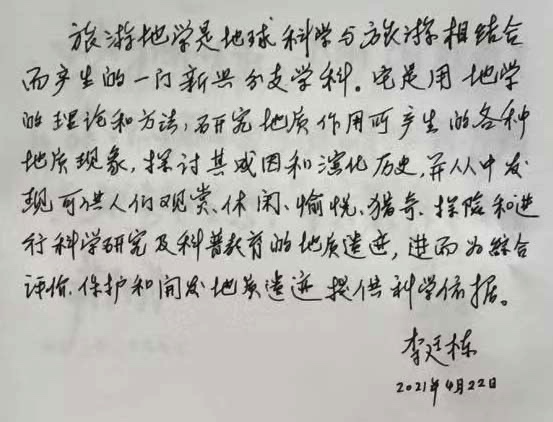 旅游地学是地球科学与旅游相结合
而产生的一门新兴分支学科。它是用地学
的理论和方法,研究地质作用所产生的各种
地质现象,探讨其成因和演化历史,并从中发
现可供人们观赏、休闲、愉悦、猎奇、探险和进
行科学研究及科普教育的地质遗迹,进而为综合
评价、保护和开发地质遗迹提供科学依据。
李廷栋
2021年4月22日